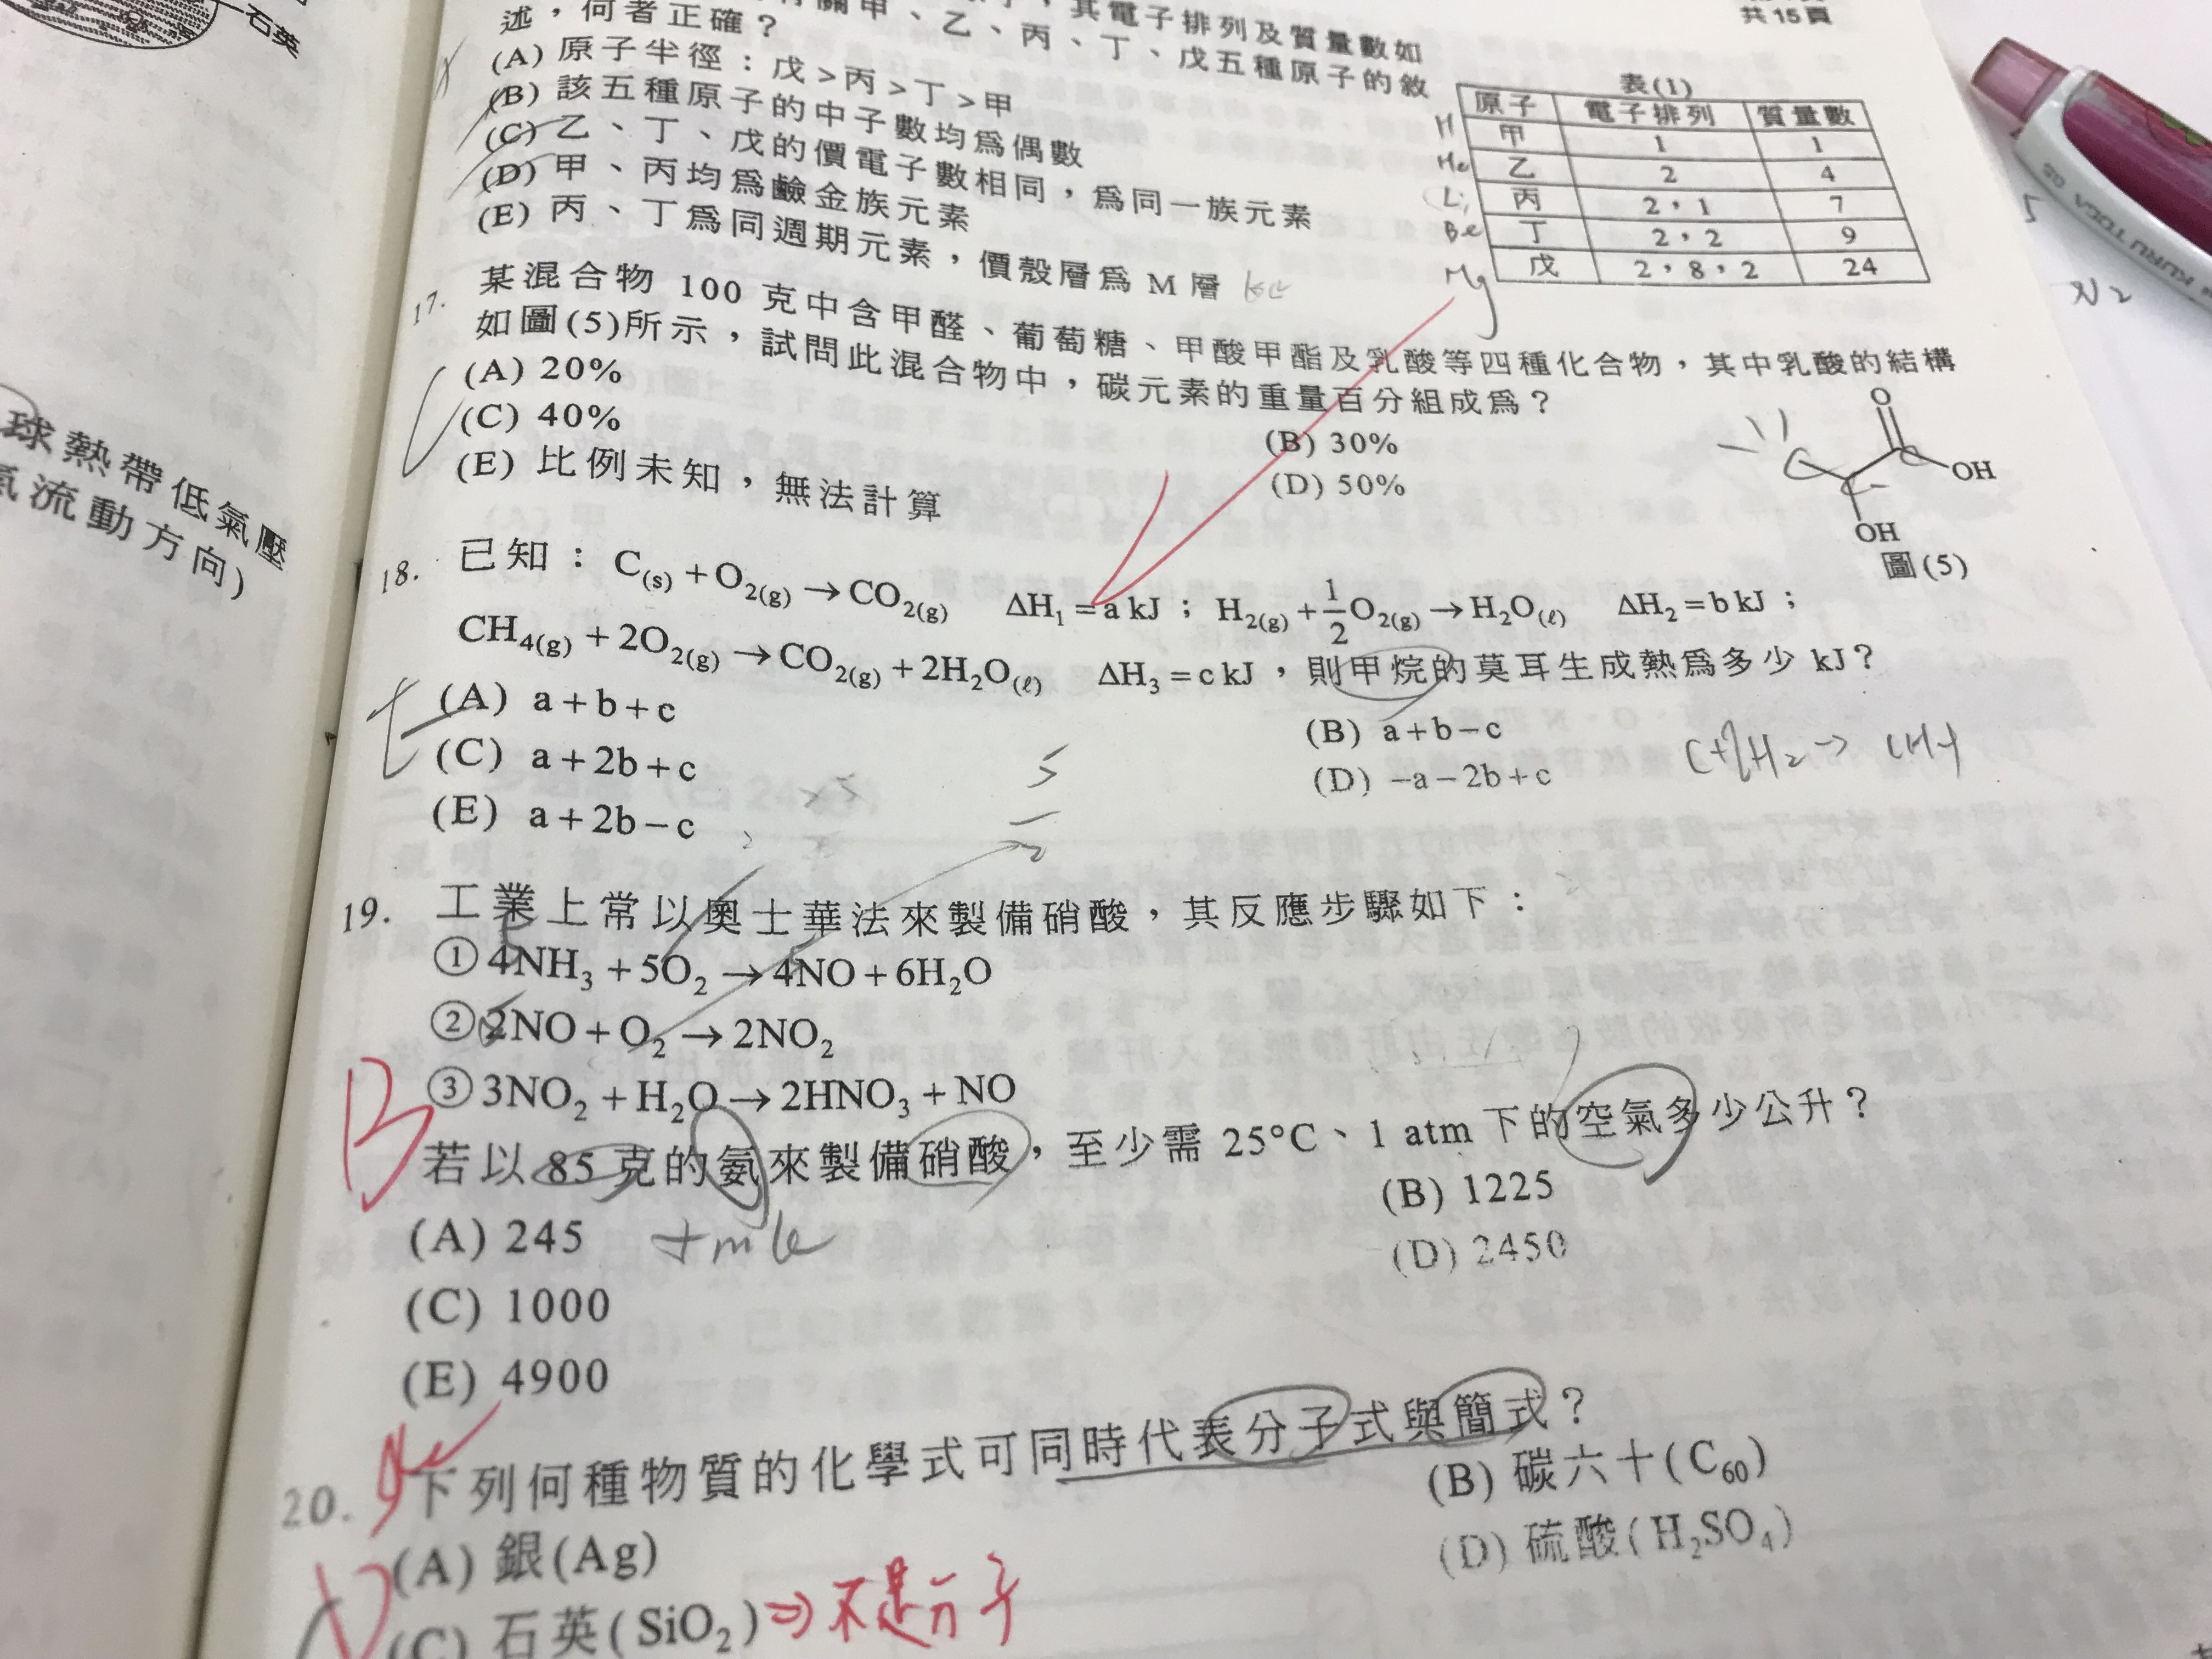 石英
球熱帶低氣壓
氣流動方向)
共15頁
其電子排列及質量數如
述，何者正確？
甲、乙、丙、丁、戊五種原子的敘
(A) 原子半徑：戊＞丙＞丁＞甲
(B) 該五種原子的中子數均為偶數
(C) 乙、丁、戊的價電子數相同，為同一族元素
(D) 甲、丙均為鹼金族元素
(E) 丙、丁為同週期元素，價殼層為 M 層
表(1)
原子 電子排列 質量數
H 甲 1 1
He 乙 2 4
Li 丙 2，1 7
Be 丁 2，2 9
Mg 戊 2，8，2 24
17. 某混合物 100 克中含甲醛、葡萄糖、甲酸甲酯及乳酸等四種化合物，其中乳酸的結構
如圖(5)所示，試問此混合物中，碳元素的重量百分組成為？
(A) 20%
(B) 30%
(C) 40%
(D) 50%
(E) 比例未知，無法計算
O
OH
OH
圖(5)
18. 已知：C(s)+O2(g)→CO2(g) ΔH1=a kJ；H2(g)+1/2O2(g)→H2O(ℓ) ΔH2=b kJ；
CH4(g)+2O2(g)→CO2(g)+2H2O(ℓ) ΔH3=c kJ，則甲烷的莫耳生成熱為多少 kJ？
(A) a+b+c
(B) a+b−c
(C) a+2b+c
(D) −a−2b+c
(E) a+2b−c
C+2H2→CH4
5
2
19. 工業上常以奧士華法來製備硝酸，其反應步驟如下：
①4NH3+5O2→4NO+6H2O
②2NO+O2→2NO2
③3NO2+H2O→2HNO3+NO
B
若以 85 克的氨來製備硝酸，至少需 25°C、1 atm 下的空氣多少公升？
(A) 245
(B) 1225
(C) 1000
(D) 2450
(E) 4900
20. 下列何種物質的化學式可同時代表分子式與簡式？
(A) 銀(Ag)
(B) 碳六十(C60)
(C) 石英(SiO2)⇒不是分子
(D) 硫酸(H2SO4)
D